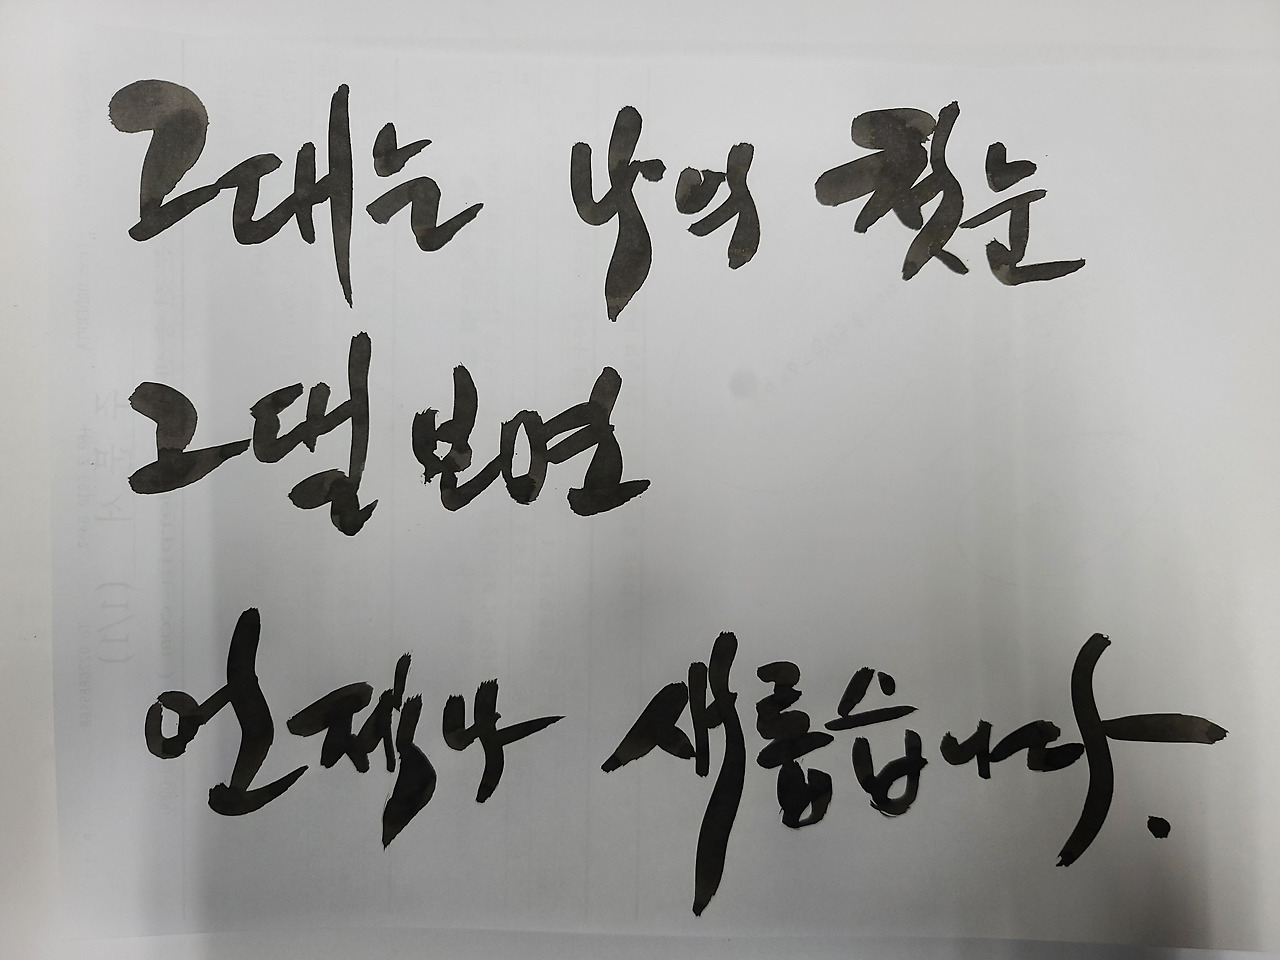 그대는 나의 첫눈
그댈 보면
언제나 새롭습니다.
(1/1)